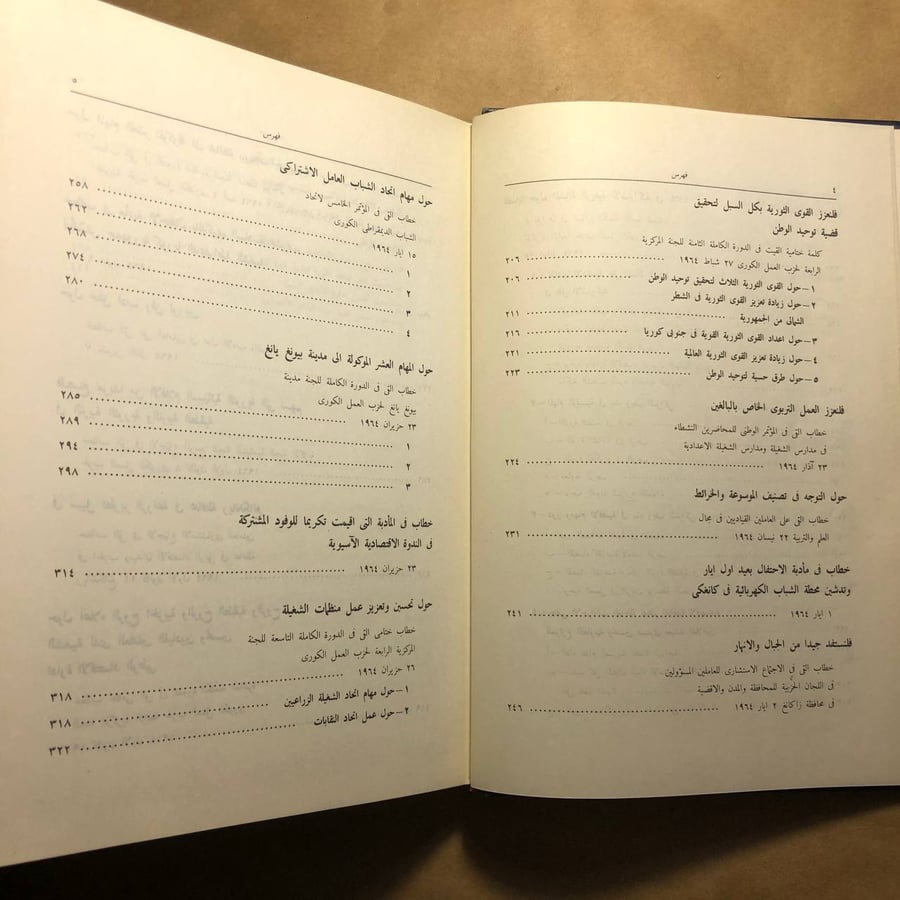 ٤
فهرس
فلنعزز القوى الثورية بكل السبل لتحقيق
قضية توحيد الوطن
كلمة ختامية القيت فى الدورة الكاملة الثامنة للجنة المركزية
الرابعة لحزب العمل الكورى ٢٧ شباط ١٩٦٤ ........ ٢٠٦
١–حول القوى الثورية الثلاث لتحقيق توحيد الوطن ........ ٢٠٦
٢–حول زيادة تعزيز القوى الثورية فى الشطر
الشمالى من الجمهورية ........ ٢١١
٣–حول اعداد القوى الثورية القوية فى جنوبى كوريا ........ ٢١٦
٤–حول زيادة تعزيز القوى الثورية العالمية ........ ٢٢١
٥–حول طرق حسية لتوحيد الوطن ........ ٢٢٣
فلنعزز العمل التربوى الخاص بالبالغين
خطاب القى فى المؤتمر الوطنى للمحاضرين النشطاء
فى مدارس الشغيلة ومدارس الشغيلة الاعدادية
٢٣ آذار ١٩٦٤ ........ ٢٢٤
حول التوجه فى تصنيف الموسوعة والخرائط
خطاب القى على العاملين القياديين فى مجال
العلم والتربية ٢٢ نيسان ١٩٦٤ ........ ٢٣١
خطاب فى مأدبة الاحتفال بعيد اول ايار
وتدشين محطة الشباب الكهربائية فى كانغكى
١ ايار ١٩٦٤ ........ ٢٤١
فلنستفد جيدا من الجبال والانهار
خطاب القى فى الاجتماع الاستشارى للعاملين المسؤولين
فى اللجان الحزبية للمحافظة والمدن والاقضية
فى محافظة زاكانغ ٢ ايار ١٩٦٤ ........ ٢٤٦
٥
فهرس
حول مهام اتحاد الشباب العامل الاشتراكى
خطاب القى فى المؤتمر الخامس لاتحاد
الشباب الديمقراطى الكورى
١٥ ايار ١٩٦٤ ........ ٢٥٨
١ ........ ٢٦٢
٢ ........ ٢٦٨
٣ ........ ٢٧٤
٤ ........ ٢٨٠
حول المهام العشر الموكولة الى مدينة بيونغ يانغ
خطاب القى فى الدورة الكاملة للجنة مدينة
بيونغ يانغ لحزب العمل الكورى
٢٣ حزيران ١٩٦٤ ........ ٢٨٥
١ ........ ٢٨٩
٢ ........ ٢٩٤
٣ ........ ٢٩٨
خطاب فى المأدبة التى اقيمت تكريما للوفود المشتركة
فى الندوة الاقتصادية الآسيوية
٢٣ حزيران ١٩٦٤ ........ ٣١٤
حول تحسين وتعزيز عمل منظمات الشغيلة
خطاب ختامى القى فى الدورة الكاملة التاسعة للجنة
المركزية الرابعة لحزب العمل الكورى
٢٦ حزيران ١٩٦٤ ........ ٣١٨
١–حول مهام اتحاد الشغيلة الزراعيين ........ ٣١٨
٢–حول عمل اتحاد النقابات ........ ٣٢٢